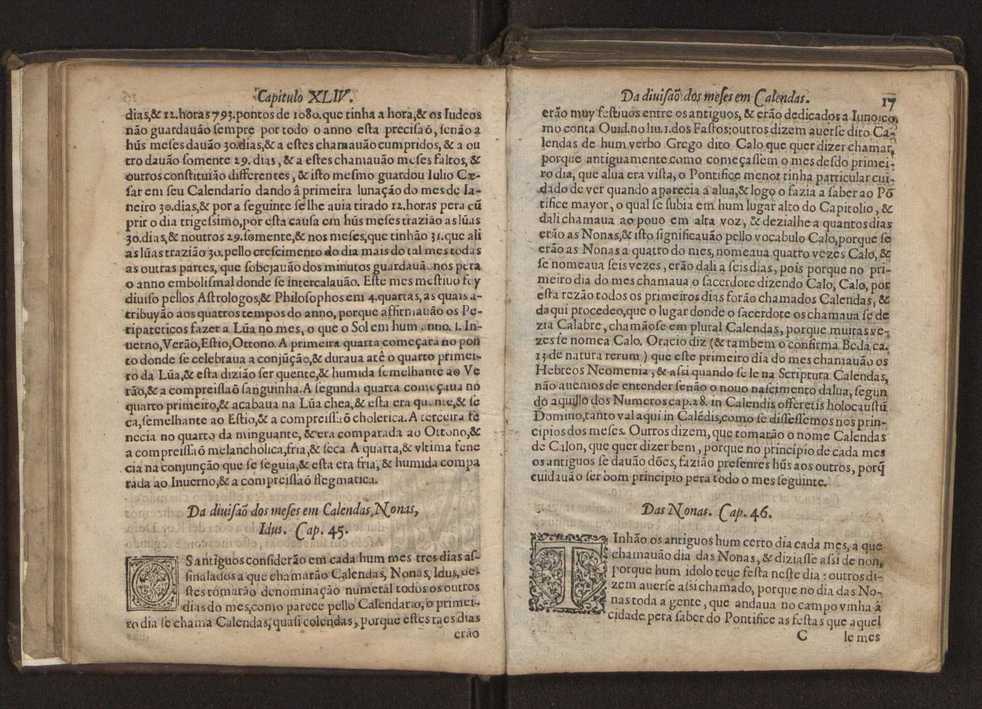 Capitulo XLIV.
dias,& 12.horas 793.pontos de 1080.que tinha a hora;& os Iudeos
não guardauão sempre por todo o anno esta precisaõ, senão a
hũs meses dauão 30.dias,& a estes chamauão cumpridos, & a ou
tro dauão somente 29. dias, & a estes chamauão meses faltos, &
outros constituião differentes, & isto mesmo guardou Iulio Cæ-
sar em seu Calendario dando á primeira lunação do mes de Ia-
neiro 30.dias,& por a seguinte se lhe auia tirado 12.horas pera cũ
prir o dia trigessimo,por esta causa em hũs meses trazião as lũas
30.dias,& noutros 29.somente,& nos meses,que tinhão 31.que ali
as lũas trazião 30.pello crescimento do dia mais do tal mes todas
as outras partes, que sobejauão dos minutos guardauã nos pera
o anno embolismal donde se intercalauão. Este mes mestiuo foy
diuiso pellos Astrologos,& Philosophos em 4.quartas, as quais a-
tribuyão aos quatros tempos do anno, porque affirmauão os Pe-
ripateticos fazer a Lũa no mes, o que o Sol em hum anno. s. In-
uerno,Verão,Estio,Ottono. A primeira quarta começara no pon
to donde se celebraua a conjũção,& duraua atê o quarto primei-
ro da Lũa,& esta dizião ser quente,& humida semelhante ao Ve
rão,& a compreissaõ sanguinha.A segunda quarta começaua no
quarto primeiro,& acabaua na Lũa chea,& esta era quente,& se
ca,semelhante ao Estio,& a compreissaõ cholerica. A terceira fe
necia no quarto da minguante, & era comparada ao Ottono,&
a compreissaõ melancholica,fria,& seca A quarta,& vltima fene
cia na conjunção que se seguia,& esta era fria, & humida compa
rada ao Inuerno,& a compreissaõ flegmatica.
Da diuisaõ dos meses em Calendas, Nonas,
Idus. Cap. 45.
OS antiguos considerão em cada hum mes tres dias as-
sinalados a que chamarão Calendas, Nonas, Idus, de-
stes tomarão denominação numeral todos os outros
dias do mes,como parece pello Calendario, o primei-
ro dia se chama Calendas,quasi colendas, porque estes tres dias
erão
Da diuisaõ dos meses em Calendas.
17
erão muy festiuos entre os antiguos, & erão dedicados a Iuno,co,
mo conta Ouid.no liu.1.dos Fastos;outros dizem auerse dito Ca-
lendas de hum verbo Grego dito Calo que quer dizer chamar,
porque antiguamente como começassem o mes desdo primei-
ro dia, que alua era vista, o Pontifice menor tinha particular cui-
dado de ver quando aparecia a alua,& logo o fazia a saber ao Põ
tifice mayor, o qual se subia em hum lugar alto do Capitolio, &
dali chamaua ao pouo em alta voz, & dezialhe a quantos dias
erão as Nonas,& isto significauão pello vocabulo Calo,porque se
erão as Nonas a quatro do mes, nomeaua quatro vezes Calo, &
se nomeaua seis vezes, erão dali a seis dias, pois porque no pri-
meiro dia do mes chamaua o sacerdote dizendo Calo, Calo, por
esta rezão todos os primeiros dias forão chamados Calendas, &
daqui procedeo,que o lugar donde o sacerdote os chamaua se de
zia Calabre, chamãose em plural Calendas, porque muitas ve-
zes se nomea Calo. Oracio diz (& tambem o confirma Beda,ca.
13.de natura rerum) que este primeiro dia do mes chamauão os
Hebreos Neomenia, & assi quando se le na Scriptura Calendas,
não auemos de entender senão o nouo nascimento da lua, segun
do aquillo dos Numeros cap.28. in Calendis offeretis holocaustũ
Domino,tanto val aqui in Calẽdis,como se dissessemos nos prin-
cipios dos meses. Outros dizem, que tomarão o nome Calendas
de Calon, que quer dizer bem, porque no principio de cada mes
os antiguos se dauão dões, fazião presentes hũs aos outros, porq̃
cuidauão ser bom principio pera todo o mes seguinte.
Das Nonas. Cap. 46.
TInhão os antiguos hum certo dia cada mes, a que
chamauão dia das Nonas, & diziasse assi de non,
porque hum idolo teue festa neste dia : outros di-
zem auerse assi chamado, porque no dia das No-
nas toda a gente, que andaua no campo vinha â
cidade pera saber do Pontifice as festas que aquel
C le mes